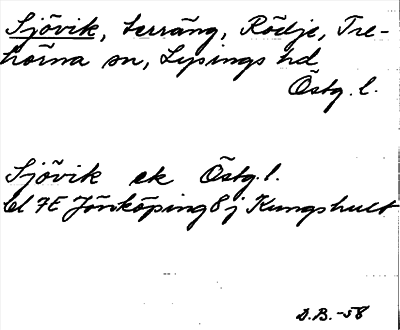 Sjövik, terräng, Rödje, Tre-
hörna sn, Lysings hd
Östg. l.
Sjövik ek Östg. l.
bl 7E Jönköping 8j Kungshult
D.B.-58